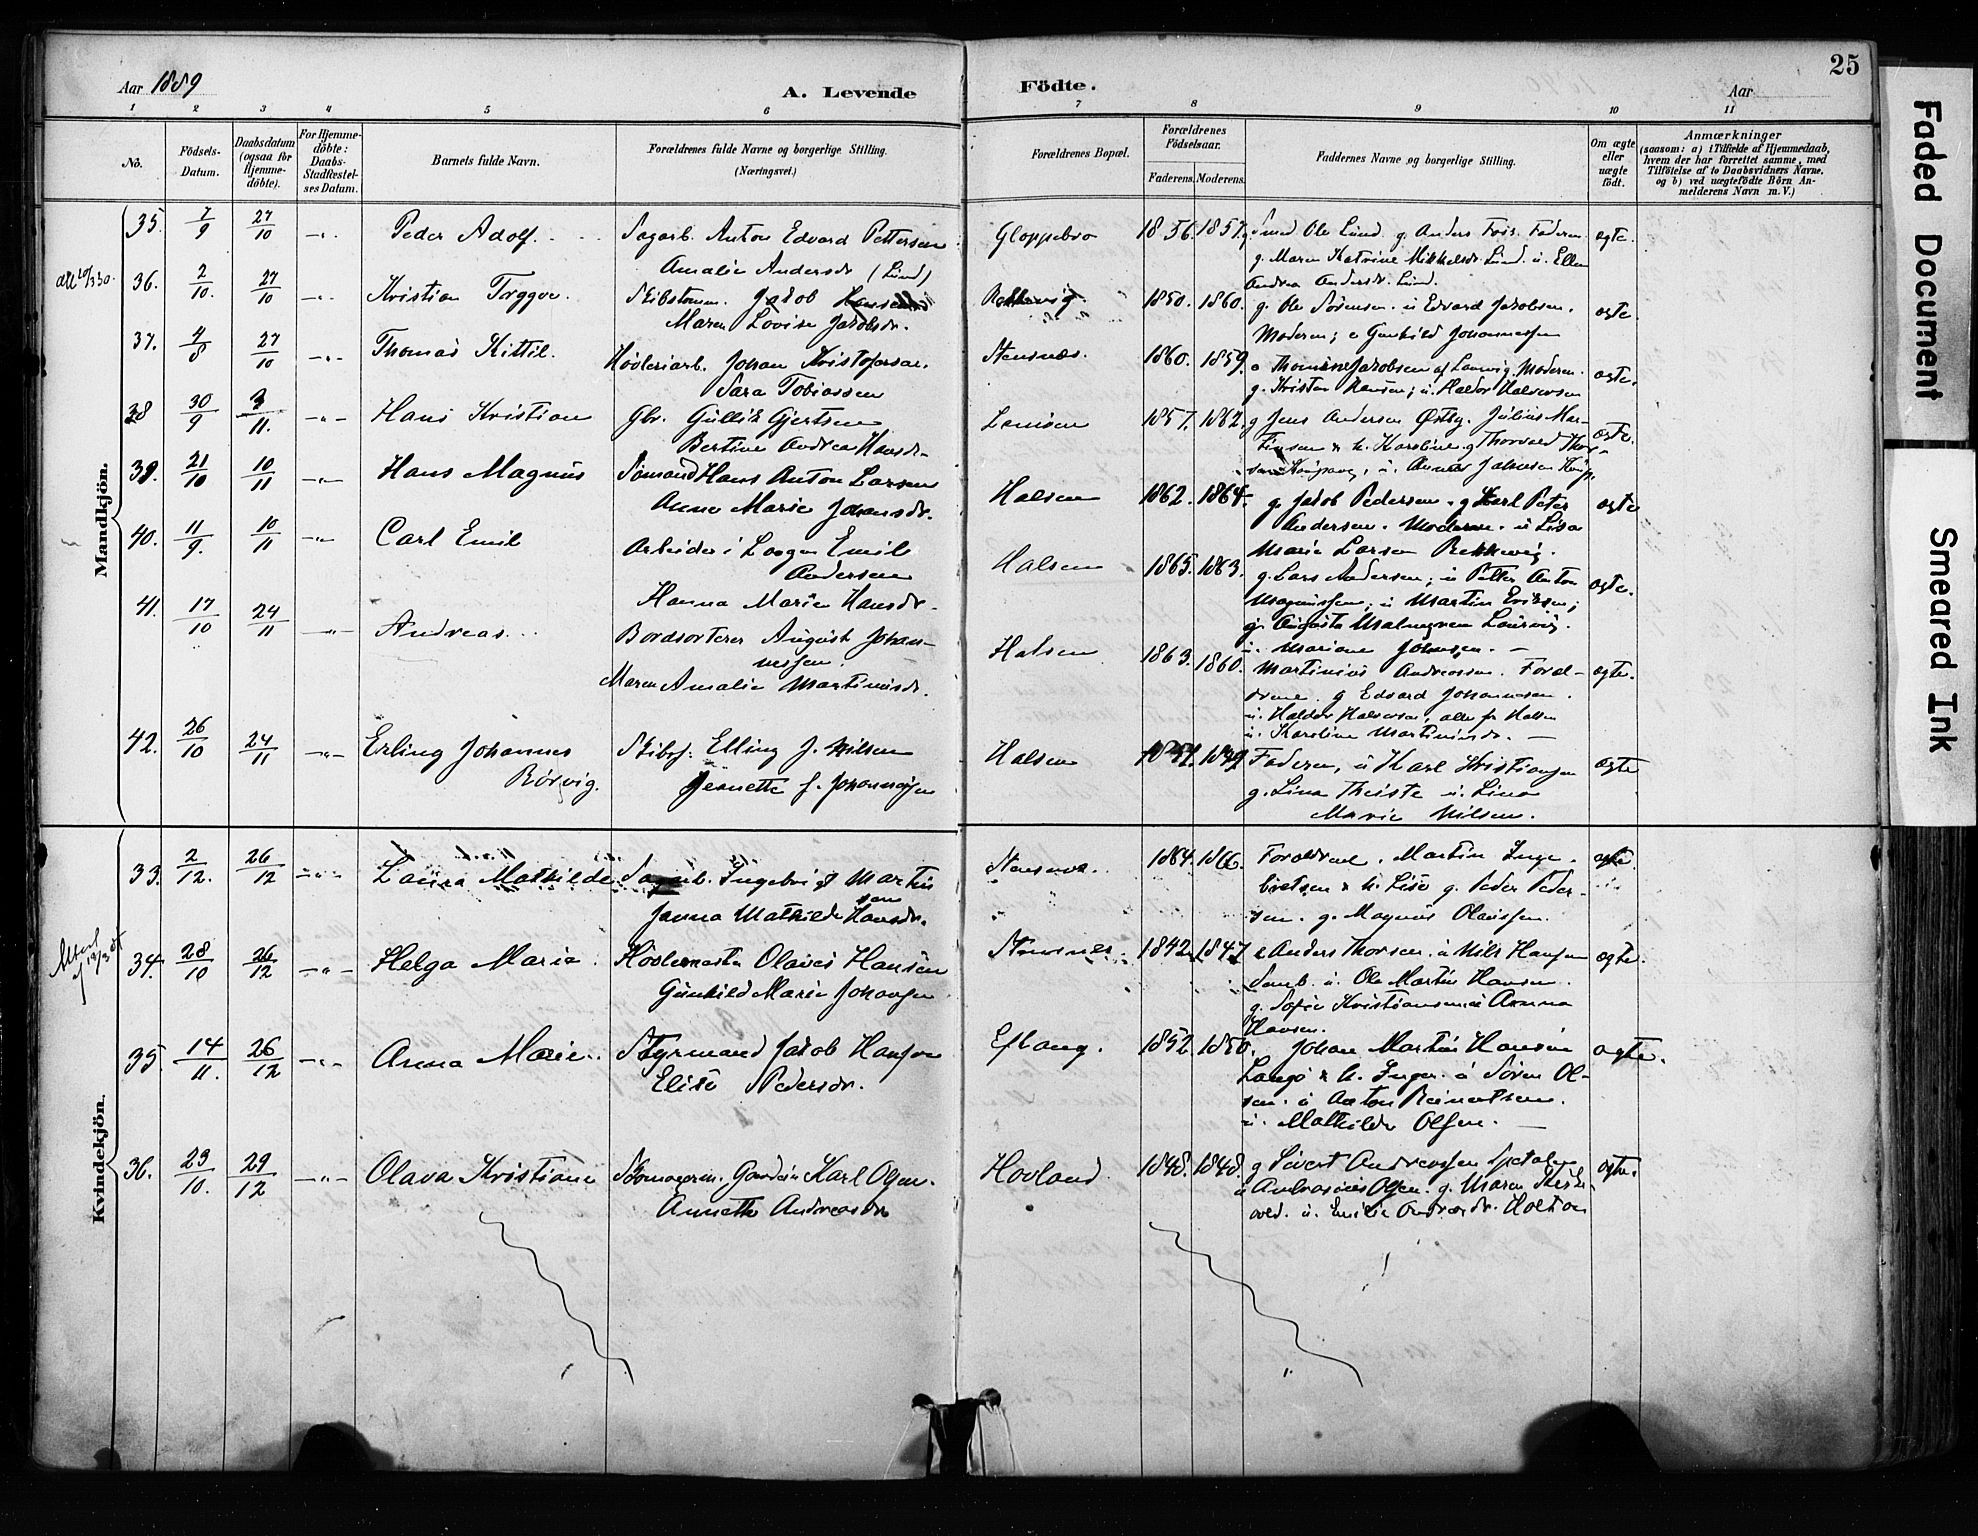 25
Aar 1889
A. Levende
Födte.
Aar
1 2 3 4 5 6 7 8 9 10 11
No.
Födsels-
Datum.
Daabsdatum
(ogsaa for
Hjemme-
döbte).
For Hjemme-
döbte:
Daabs-
Stadfæstel-
ses Datum.
Barnets fulde Navn.
Forældrenes fulde Navne og borgerlige Stilling.
(Næringsvei.)
Forældrenes Bopæl.
Forældrenes
Födselsaar.
Faderens. Moderens.
Faddernes Navne og borgerlige Stilling.
Om ægte
eller
uægte
födt.
Anmærkninger
(saasom: a) i Tilfælde af Hjemmedaab,
hvem der har forrettet samme, med
Tilföielse af to Daabsvidners Navne,
og b) ved uægtefödte Börn An-
melderens Navn m. V.)
Mandkjön.
35. 7/9 27/10 -"- Peder Adolf. Sagarb. Anton Edvard Pettersen
Amalie Andersdr (Lund)
Gloppebro 1856. 1857. Smed Ole Lund. g. Anders Fris. Faderen
g. Maren Katrine Mikkelsdr. Lund. u. Ellen
Andrea Andersdr. Lund. ægte.
36. 2/10. 27/10 -"- Kristian Tryggve. Skibstømm. Jakob Hansen
Maren Lovise Jakobsdr.
1850. 1860. g. Ole Sørensen. u Edvard Jakobsen.
Moderen; e Gunhild Johannessen ægte.
37. 4/8 27/10 -"- Thomas Kittil. Høvleriarb. Johan Kristofersen.
Sara Tobiassen
Stensnæs. 1860. 1859. e Thomine Jakobsen af Laurvig. Moderen.
g. Kristen Hansen; u. Haldor Halvorsen ægte.
38 30/9 3/11. -"- Hans Kristian Gbr. Gullik Gjertsen
Bertine Andrea Hansdr.
1857. 1862. g Jens Andersen Østby. Julius Mar-
tinsen & h. Karoline. g Thorvald Thor-
ægte.
39. 21/10 10/11 -"- Hans Magnus Sømand Hans Anton Larsen
Anne Marie Johansdr.
Halsen 1862. 1864. g. Jakob Pedersen. g Karl Peter
Andersen. Moderen. u Lisa
Marie Larsen Rekkevig. ægte
40. 11/9. 10/11 -"- Carl Emil Arbeider i Laagen Emil
Andersen
Hanna Marie Hansdr.
Halsen 1865. 1863. g. Lars Andersen; u Petter Anton
Magnussen; u Martin Eriksen;
g. Augusta Malmgren Laurvig.
u. Mariane Johnsen. ægte.
41. 17/10 24/11 -"- Andreas. Bordsorterer August Johan-
nessen.
Maren Amalie Martinusdr.
Halsen 1863. 1860. Martinius Andreassen. Foræl-
drene. g Edvard Johannesen.
u. Haldor Halvorsen, alle fr Halsen
u. Karoline Martinusdr. ægte.
42. 26/10 24/11 -"- Erling Johannes
Rørvig.
Skibsf. Elling J. Nilsen
Jeanette f. Johannesen
Halsen 1849 Faderen, u Karl Kristiansen
g. Lina Theiste u. Lina
Marie Nilsen. ægte
Kvindekjön.
33. 2/12. 26/12 -"- Laura Mathilde Ingebrigt Martin
sen
Janna Mathilde Hansdr.
1864. 1866. Forældrene. Martin Inge-
bretsen & h. Lise g. Peder Peder-
sen. g. Magnus Olaussen. ægte
34. 28/10 26/12 -"- Helga Marie. Høvlemester Olaves Hansen
Gunhild Marie Johansen
Stensnes. 1842. 1847 e Anders Thorsen. u Nils Hansen
Samb. u. Ole Martin Hansen.
g. Sofie Kristiansen u Anna
Hansen. ægte.
35. 14/11. 26/12 -"- Anna Marie. Styrmand Jakob Hansen
Elise Pedersdr.
Eftang. 1852 1850. Johan Martin Hansen
Langø & h. Inger. u Søren Ol-
sen. u Anton Reinertsen.
u. Mathilde Olsen. ægte.
36. 23/10. 29/12 -"- Olava Kristiane Karl Olsen.
Annette Andreasdr
Hovland 1848. 1848. g Sivert Andreassen
u Ambrosius Olsen. g. Maren
u. Emilie Andreasdr. Holton ægte.
Faded Document
Smeared Ink